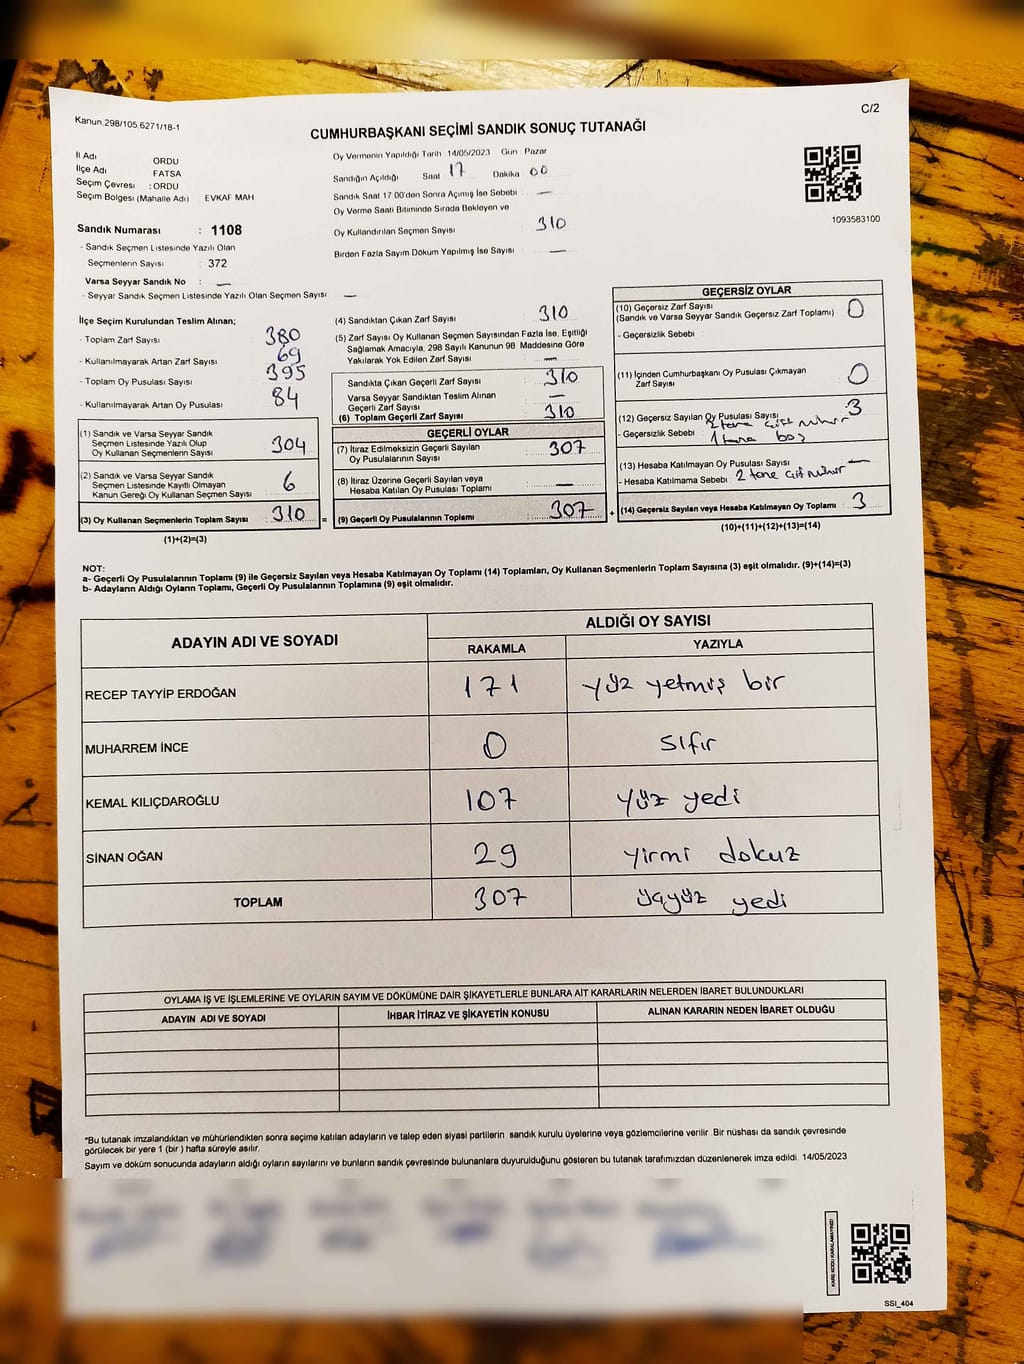 Kanun.298/105.6271/18-1
C/2
CUMHURBAŞKANI SEÇİMİ SANDIK SONUÇ TUTANAĞI
İl Adı ORDU
İlçe Adı FATSA
Seçim Çevresi : ORDU
Seçim Bölgesi (Mahalle Adı) : EVKAF MAH
Sandık Numarası : 1108
- Sandık Seçmen Listesinde Yazılı Olan
Seçmenlerin Sayısı : 372
Varsa Seyyar Sandık No : —
- Seyyar Sandık Seçmen Listesinde Yazılı Olan Seçmen Sayısı : —
Oy Vermenin Yapıldığı Tarih 14/05/2023 Gün Pazar
Sandığın Açıldığı Saat 17 Dakika 00
Sandık Saat 17 00'den Sonra Açımış İse Sebebi : —
Oy Verme Saati Bitiminde Sırada Bekleyen ve
Oy Kullandırılan Seçmen Sayısı 310
Birden Fazla Sayım Döküm Yapılmış İse Sayısı : —
1093583100
İlçe Seçim Kurulundan Teslim Alınan;
- Toplam Zarf Sayısı : 380
- Kullanılmayarak Artan Zarf Sayısı : 69
- Toplam Oy Pusulası Sayısı : 395
- Kullanılmayarak Artan Oy Pusulası : 84
(1) Sandık ve Varsa Seyyar Sandık
Seçmen Listesinde Yazılı Olup
Oy Kullanan Seçmenlerin Sayısı : 304
(2) Sandık ve Varsa Seyyar Sandık
Seçmen Listesinde Kayıtlı Olmayan
Kanun Gereği Oy Kullanan Seçmen Sayısı : 6
(3) Oy Kullanan Seçmenlerin Toplam Sayısı : 310 =
(1)+(2)=(3)
(4) Sandıktan Çıkan Zarf Sayısı : 310
(5) Zarf Sayısı Oy Kullanan Seçmen Sayısından Fazla İse, Eşitliği
Sağlamak Amacıyla, 298 Sayılı Kanunun 98. Maddesine Göre
Yakılarak Yok Edilen Zarf Sayısı : —
Sandıkta Çıkan Geçerli Zarf Sayısı : 310
Varsa Seyyar Sandıktan Teslim Alınan
Geçerli Zarf Sayısı : —
(6) Toplam Geçerli Zarf Sayısı : 310
GEÇERLİ OYLAR
(7) İtiraz Edilmeksizin Geçerli Sayılan
Oy Pusulalarının Sayısı : 307
(8) İtiraz Üzerine Geçerli Sayılan veya
Hesaba Katılan Oy Pusulası Toplamı : —
(9) Geçerli Oy Pusulalarının Toplamı : 307 +
GEÇERSİZ OYLAR
(10) Geçersiz Zarf Sayısı
(Sandık ve Varsa Seyyar Sandık Geçersiz Zarf Toplamı) : 0
- Geçersizlik Sebebi :
(11) İçinden Cumhurbaşkanı Oy Pusulası Çıkmayan
Zarf Sayısı : 0
(12) Geçersiz Sayılan Oy Pusulası Sayısı : 3
- Geçersizlik Sebebi : 2 tane çift mühür
1 tane boş
(13) Hesaba Katılmayan Oy Pusulası Sayısı : —
- Hesaba Katılmama Sebebi : 2 tane çift mühür
(14) Geçersiz Sayılan veya Hesaba Katılmayan Oy Toplamı : 3
(10)+(11)+(12)+(13)=(14)
NOT:
a- Geçerli Oy Pusulalarının Toplamı (9) ile Geçersiz Sayılan veya Hesaba Katılmayan Oy Toplamı (14) Toplamları, Oy Kullanan Seçmenlerin Toplam Sayısına (3) eşit olmalıdır. (9)+(14)=(3)
b- Adayların Aldığı Oyların Toplamı, Geçerli Oy Pusulalarının Toplamına (9) eşit olmalıdır.
ADAYIN ADI VE SOYADI ALDIĞI OY SAYISI
RAKAMLA YAZIYLA
RECEP TAYYİP ERDOĞAN 171 yüz yetmiş bir
MUHARREM İNCE 0 sıfır
KEMAL KILIÇDAROĞLU 107 yüz yedi
SİNAN OĞAN 29 yirmi dokuz
TOPLAM 307 üçyüz yedi
OYLAMA İŞ VE İŞLEMLERİNE VE OYLARIN SAYIM VE DÖKÜMÜNE DAİR ŞİKAYETLERLE BUNLARA AİT KARARLARIN NELERDEN İBARET BULUNDUKLARI
ADAYIN ADI VE SOYADI İHBAR İTİRAZ VE ŞİKAYETİN KONUSU ALINAN KARARIN NEDEN İBARET OLDUĞU
*Bu tutanak imzalandıktan ve mühürlendikten sonra seçime katılan adayların ve talep eden siyasi partilerin sandık kurulu üyelerine veya gözlemcilerine verilir. Bir nüshası da sandık çevresinde
görülecek bir yere 1 (bir ) hafta süreyle asılır.
Sayım ve döküm sonucunda adayların aldığı oyların sayılarını ve bunların sandık çevresinde bulunanlara duyurulduğunu gösteren bu tutanak tarafımızdan düzenlenerek imza edildi. 14/05/2023
KARE KODU KARALAMAYINIZ!
SSI_404